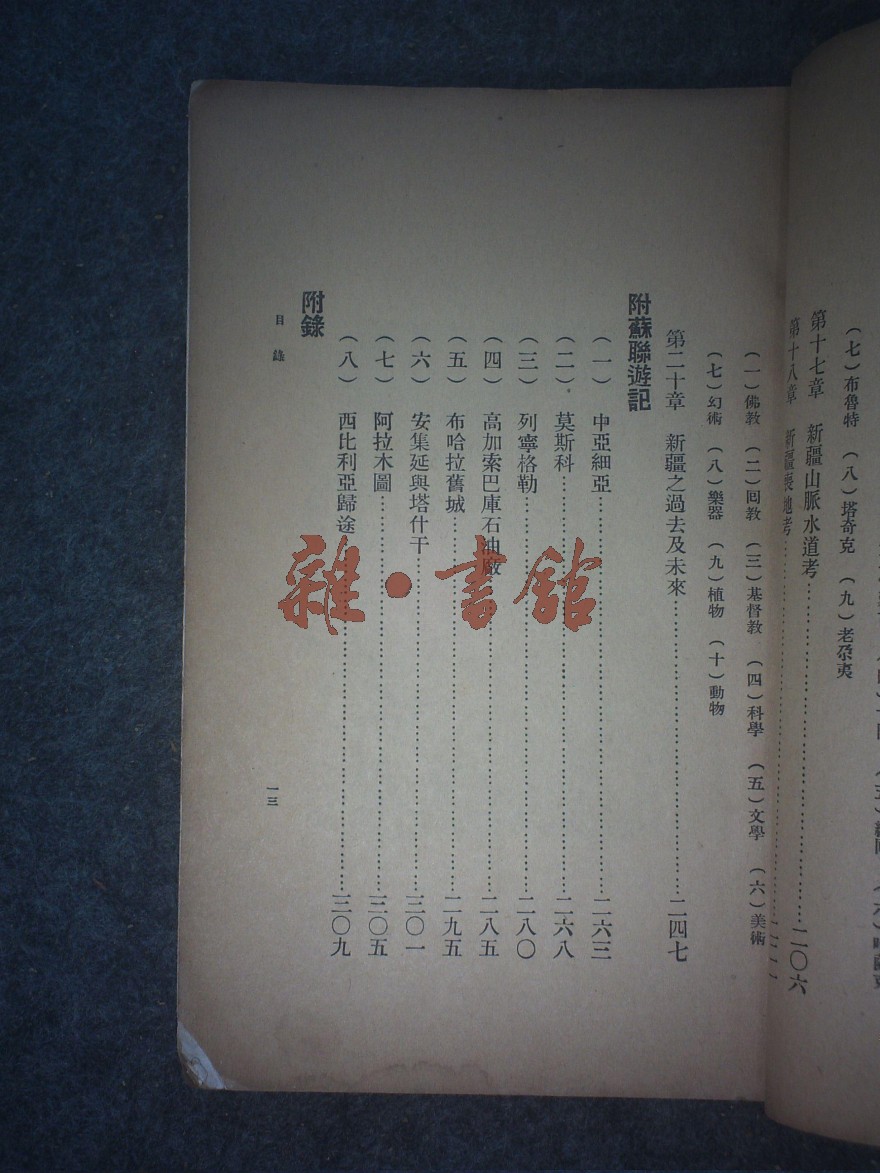 (七)布魯特 (八)塔奇克 (九)老尕夷
第十七章 新疆山脈水道考……二〇六
第十八章 新疆喪地考……
(一)佛教 (二)回教 (三)基督教 (四)科學 (五)文學 (六)美術
(七)幻術 (八)樂器 (九)植物 (十)動物
第二十章 新疆之過去及未來……二四七
附蘇聯遊記
(一) 中亞細亞……二六三
(二) 莫斯科……二六八
(三) 列寧格勒……二八〇
(四) 高加索巴庫石油廠……二八五
(五) 布哈拉舊城……二九五
(六) 安集延與塔什干……三〇一
(七) 阿拉木圖……三〇五
(八) 西比利亞歸途……三〇九
附錄
目錄
一三
雜·書館